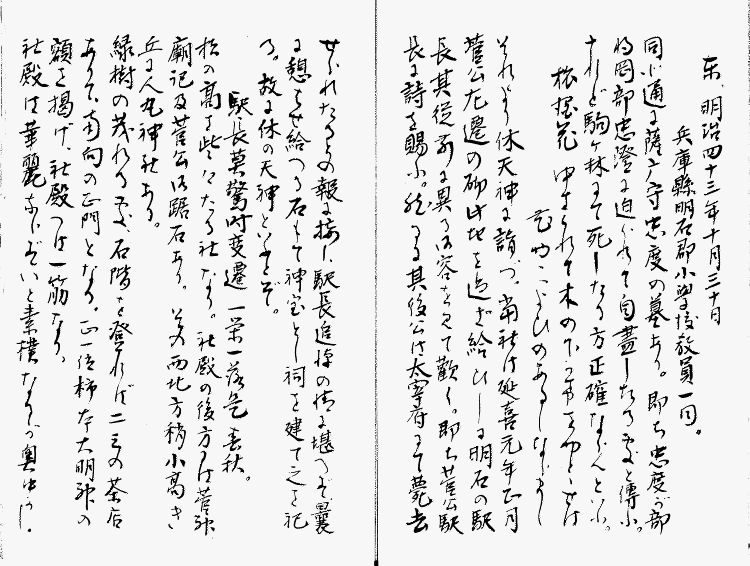 東、明治四十三年十月三十日
兵庫縣明石郡小學校教員一同。
同小通に薩广守忠度の墓あり。即ち忠度が部
将岡部忠澄に迫られて自盡したる処と傳ふ。
されど駒ヶ林にて死したる方正確ならんといふ。
旅宿花 ゆきくれて木の下かげをやどとせば
花やこよひのあるじならまし
それより休天神に詣づ。當社は延喜元年正月
菅公左遷の砌此地を過ぎ給ひしに明石の駅
長其従前に異る御容を見て歎く。即ち菅公駅
長に詩を賜ふ。然るに其後公は太宰府にて薨去
せられたるとの報に接し駅長追悼の情に堪へず曩
に憩はせ給へる石もて神宝とし祠を建て之を祀
る。故に休の天神といふとぞ。
駅長莫驚時変遷 一栄一落是春秋。
松の高き些々たる社なり。社殿の後方には菅神
廟記及菅公御踞石あり。その西北方稍小高き
丘に人丸神社ある。
緑樹の茂れる処、石階を登れば二三の茶店
ありて、南向の正門となる。正一位柿本大明神の
額を掲げ、社殿へは一筋なり。
社殿は華麗ならざれど素樸なるが奥ゆかし。